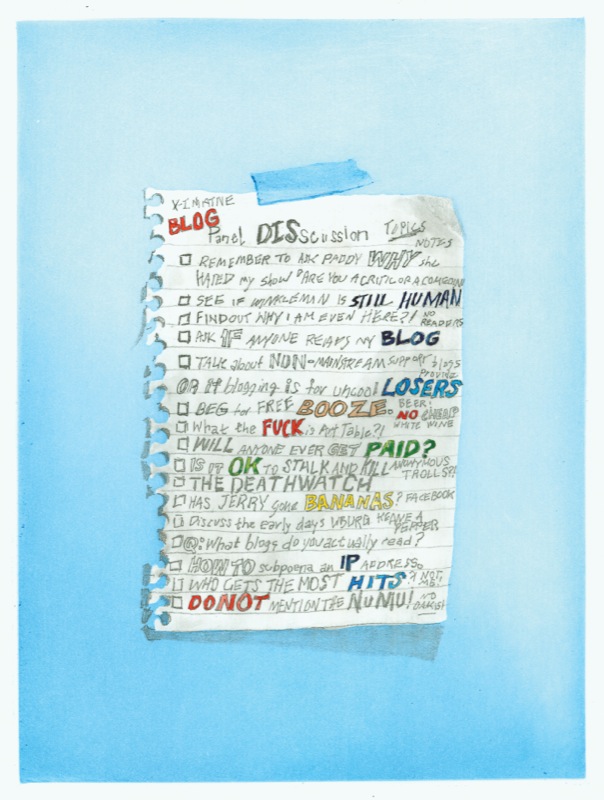 X-IMAINE
BLOG Panel DISscussion TOPICS
NOTES
REMEMBER TO ASK PADDY WHY she
HATED my SHOW "ARE YOU A CRITIC OR A
SEE IF WINKLEMAN IS STILL HUMAN
FIND OUT WHY I AM EVEN HERE?! NO READERS
ASK IF ANYONE READS my BLOG
TALK about NON-MAINSTREAM SUPPORT blogs
OR If blogging IS for uncool LOSERS
BEG for FREE BOOZE. BEER! NO CHEAP WHITE WINE
What the FUCK is Art Table?!
WILL ANYONE EVER GET PAID?
IS IT OK TO STALK AND KILL ANONYMOUS TROLLS?!
THE DEATHWATCH
HAS JERRY gone BANANAS? FACEBOOK
Discuss the early days WBURG KEANE A PEPPER
Q: What blogs do you actually read?
HOW TO subpoena an IP ADDRESS.
WHO GETS THE MOST HITS? NOT ME.
DO NOT MENTION THE NuMU! NO